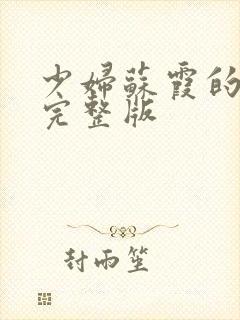 少婦蘇霞的
完整版
封雨笙